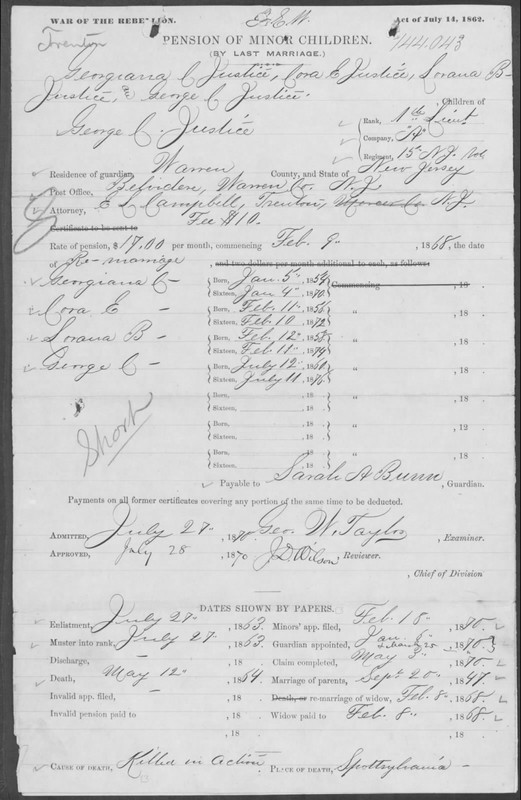 WAR OF THE REBELLION.
Act of July 14, 1862.
Trenton
PENSION OF MINOR CHILDREN.
144.043
(BY LAST MARRIAGE.)
Georgiana C Justice, Cora E Justice, Lorana B-
Justice, & George C Justice. , Children of
George C. Justice
Rank, 1st Lieut
Company, "A"
Regiment, 15" N.J. Vol
Residence of guardian, Warren County, and State of New Jersey
Post Office, Belvidere, Warren Co. N.J.
Attorney, E L Campbell, Trenton, Mercer Co. N.J.
Certificate to be sent to Fee $10.
Rate of pension, $17.00 per month, commencing Feb. 9" , 1868, the date
of Re-marriage , and two dollars per month additional to each, as follows:
Georgiana C- Born, Jan. 5" , 1854 Commencing , 18
Sixteen, Jan 4" , 1870
Cora E- Born, Feb. 11" , 1856 " , 18
Sixteen, Feb. 10 , 1872
Lorana B- Born, Feb. 12" , 1858 " , 18
Sixteen, Feb. 11" , 1874
George C- Born, July 12" , 1860 " , 18
Sixteen, July 11 , 1876
Born, , 18 " , 18
Sixteen, , 18
Short
Born, , 18 " , 12
Sixteen, , 18
Born, , 18 " , 18
Sixteen, , 18
Payable to Sarah A Bunn , Guardian.
Payments on all former certificates covering any portion of the same time to be deducted.
ADMITTED, July 27" , 1870 Geo. W. Taylor , Examiner.
APPROVED, July 28 , 1870 J.D. Wilson , Reviewer.
, Chief of Division
DATES SHOWN BY PAPERS.
Enlistment, July 27" , 1863. Minors' app. filed, Feb. 18" , 1870.
Muster into rank, July 27 , 1863. Guardian appointed, Jan. 8" & March 28 , 1870
Discharge, — , 18 Claim completed, May 3" , 1870.
Death, May 12" , 1864. Marriage of parents, Sept 20" , 1847.
Invalid app. filed, — , 18 Death, or re-marriage of widow, Feb. 8" , 1868.
Invalid pension paid to , 18 Widow paid to Feb. 8" , 1868
, 18 , 18
CAUSE OF DEATH, Killed in action PLACE OF DEATH, Spottsylvania-